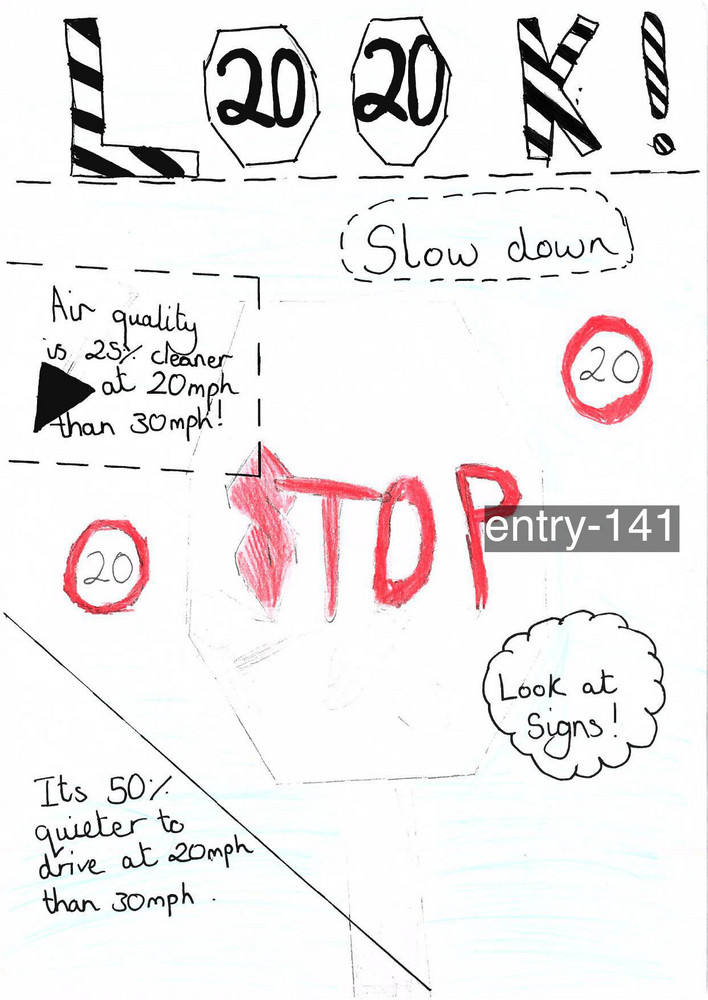 L 20 20 K!
Slow down
Air quality
is 25% cleaner
at 20mph
than 30mph!
20
STOP
entry-141
20
Look at
Signs!
Its 50%
quieter to
drive at 20mph
than 30mph.